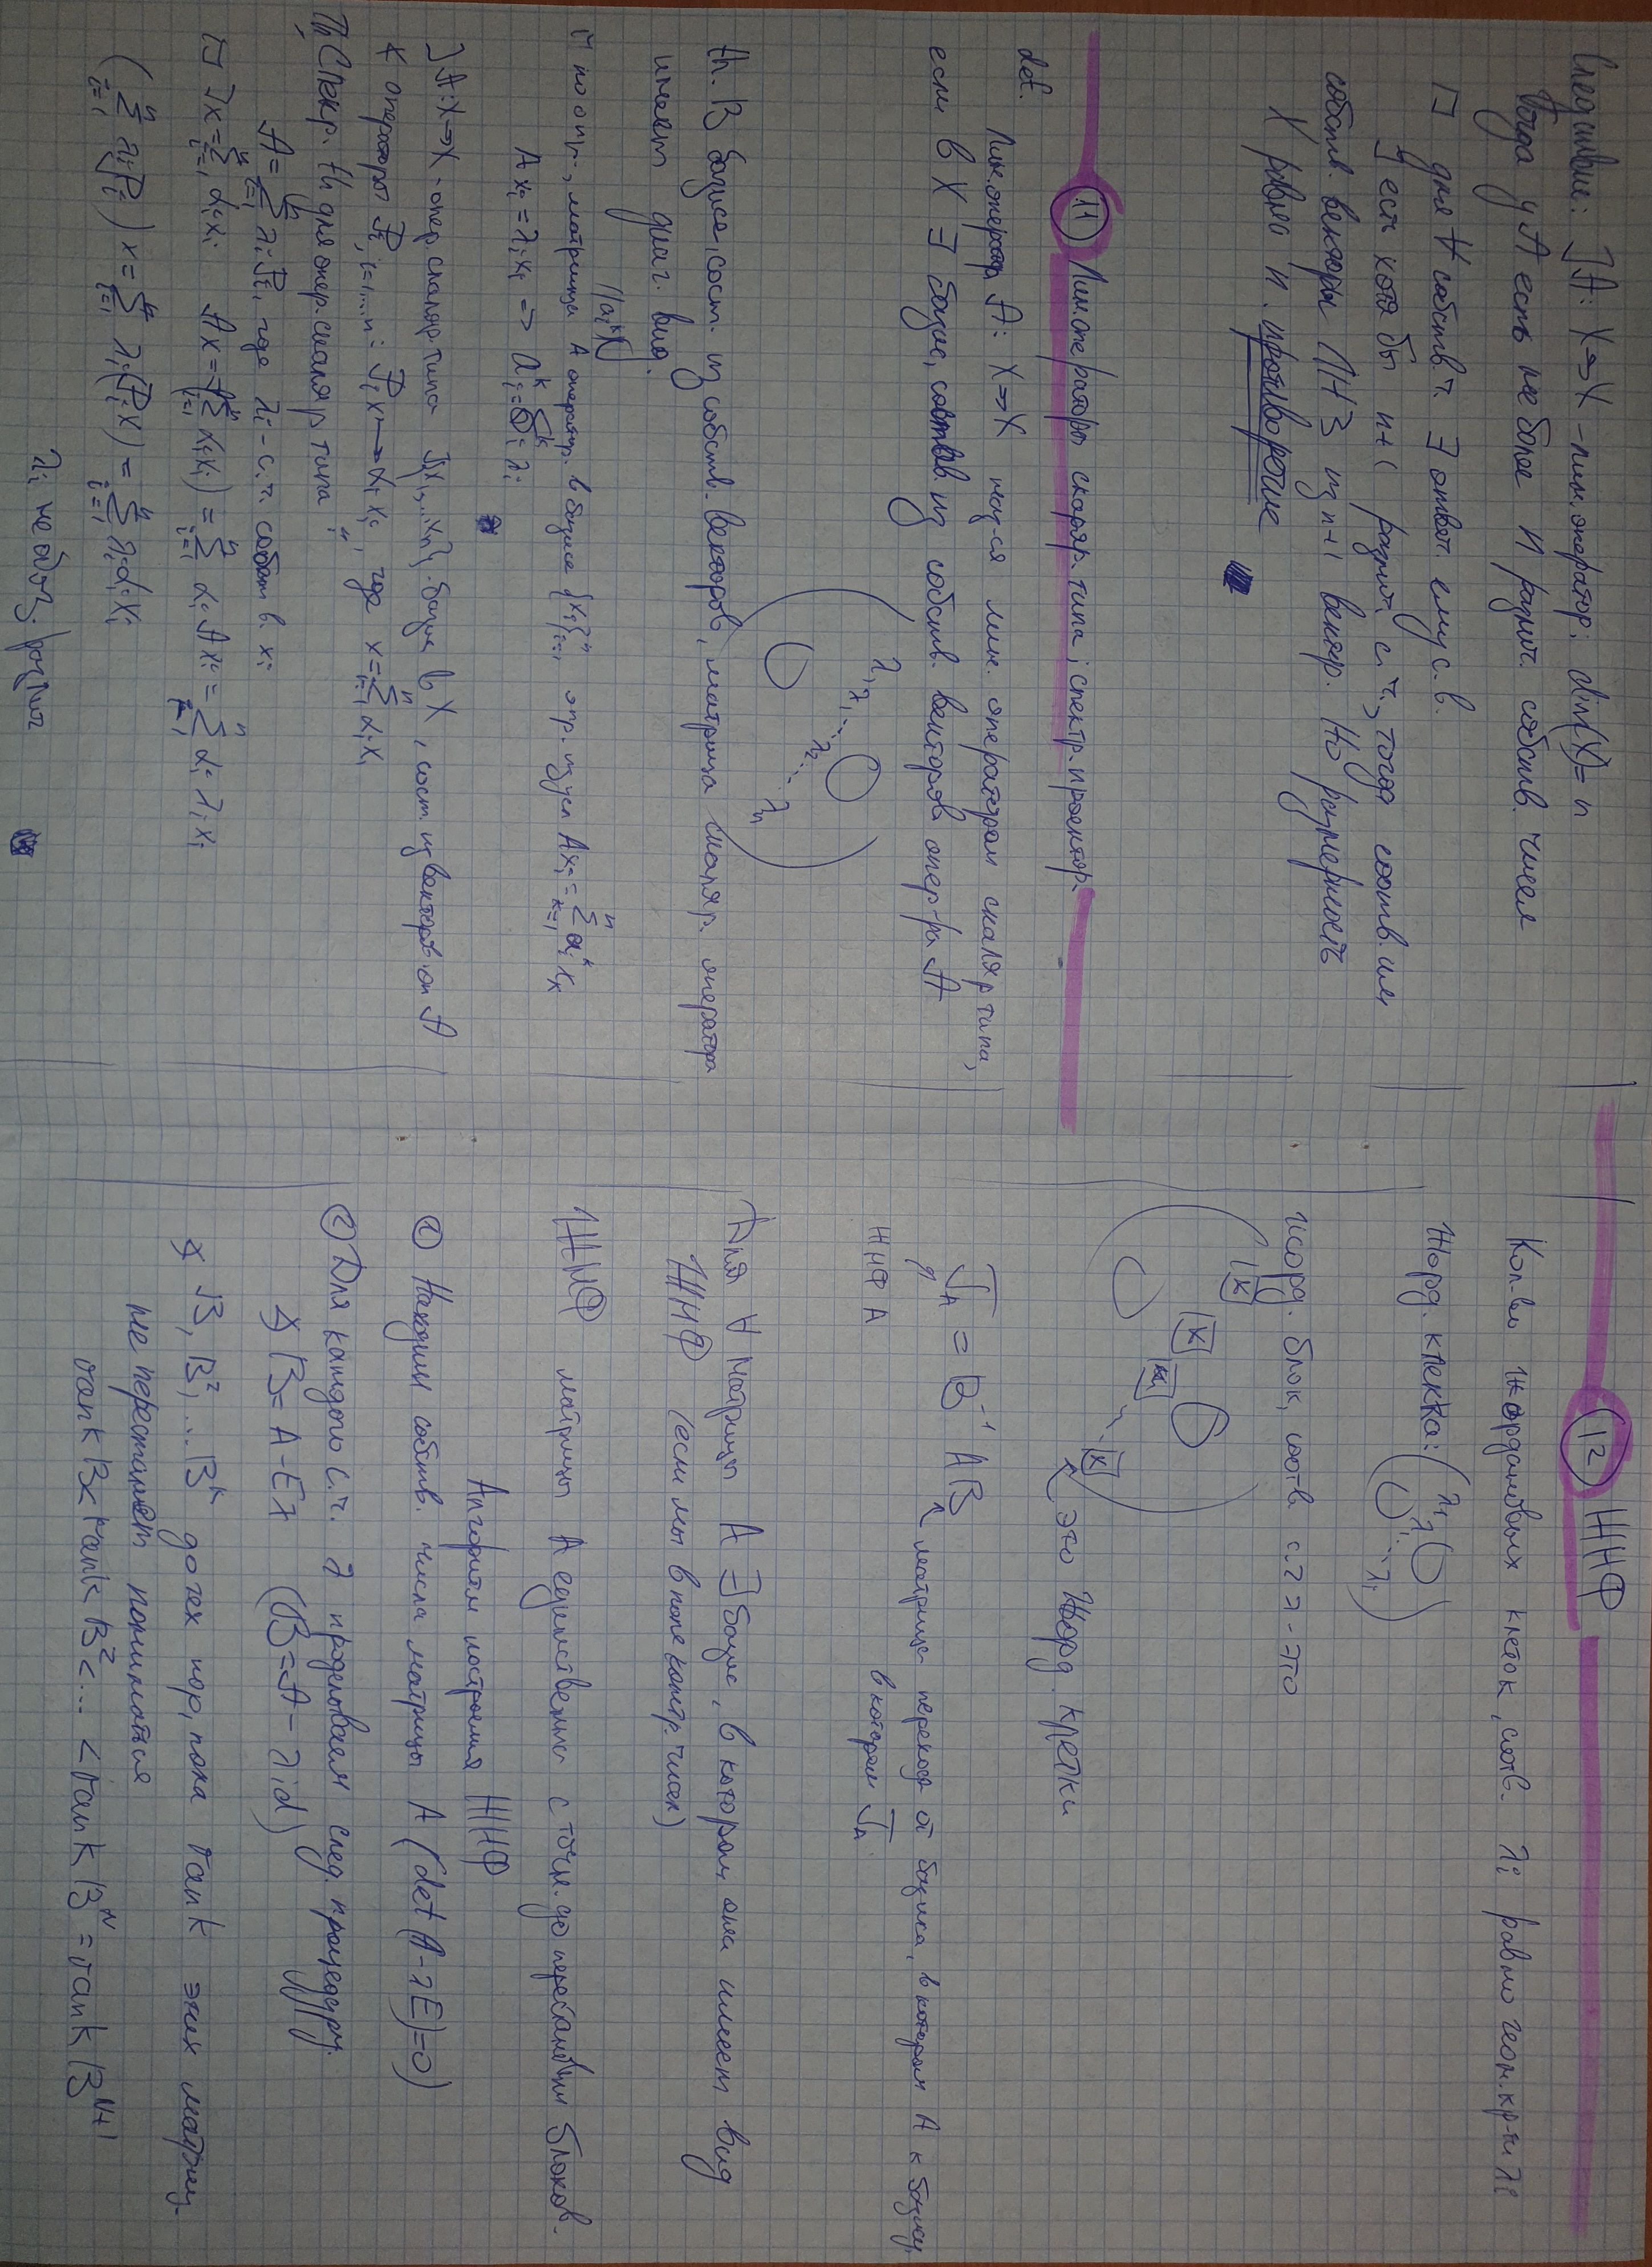 Следствие: ] A: X→X - лин. оператор; dim(X) = n
Тогда у A есть не более n различ. собств. чисел
□ для ∀ собств. ч. ∃ ответ ему с. в.
] есть хотя бы n+1 различ. с. ч., тогда соотв. им
собств. векторы ЛНЗ из n+1 вектор. Но размерность
X равно n. противоречие
11 Лин. операторы скаляр. типа; спектр. проектор.
def. Лин. оператор A: X→X наз-ся лин. оператором скаляр типа,
если в X ∃ базис, состав. из собств. векторов опер-ра A
th. В базисе, сост. из собств. векторов, матрица скаляр. оператора
имеет диаг. вид.
λ₁ λ₁ ... λ₂ ... λₙ
□ по опр., матрица A оператр. в базисе {xᵢ}ⁿᵢ₌₁ опр. из усл Axᵢ = Σⁿₖ₌₁ aᵢᵏ xₖ
‖aᵢᵏ‖
Axᵢ = λᵢxᵢ => aᵢᵏ = δᵢᵏ λᵢ
] A: X→X - опер. скаляр. типа ] {x₁, ... xₙ} - базис в X, сост. из векторов оп A
∢ оператор Pᵢ, i=1...n: Pᵢx → αᵢxᵢ, где x = Σⁿᵢ₌₁ αᵢxᵢ
Th "Спектр. th для опер. скаляр типа"
A = Σⁿᵢ₌₁ λᵢPᵢ, где λᵢ - с. ч. собств в. xᵢ
□ ] x = Σⁿᵢ₌₁ αᵢxᵢ Ax = A(Σⁿᵢ₌₁ αᵢxᵢ) = Σⁿᵢ₌₁ αᵢAxᵢ = Σⁿᵢ₌₁ αᵢλᵢxᵢ
(Σⁿᵢ₌₁ λᵢPᵢ)x = Σⁿᵢ₌₁ λᵢ(Pᵢx) = Σⁿᵢ₌₁ λᵢαᵢxᵢ
λᵢ не обяз. различ
12 ЖНФ
Кол-во жордановых клеток, соотв. λᵢ равно геом. кр-ти λᵢ
Жорд. клетка: (λᵢ λᵢ ... λᵢ)
жорд. блок, соотв. с. ч λ - это
это жорд. клетки
J_A = B⁻¹ A B
ЖНФ A
матрица перехода от базиса, в котором A к базису,
в котором J_A
Для ∀ матрицы A ∃ базис, в котором она имеет вид
ЖНФ (если мы в поле компл. чисел)
ЖНФ матрицы A единственны с точн. до перестановки блоков.
Алгоритм построения ЖНФ
① Находим собств. числа матрицы A (det(A-λE)=0)
② Для каждого с. ч. λ проделываем след. процедуру.
∢ B = A - Eλ (B = A - λid)
∢ B, B², ... Bᵏ до тех пор, пока rank этих матриц
не перестанет пониматся
rank B < rank B² < ... < rank Bᴺ = rank Bᴺ⁺¹